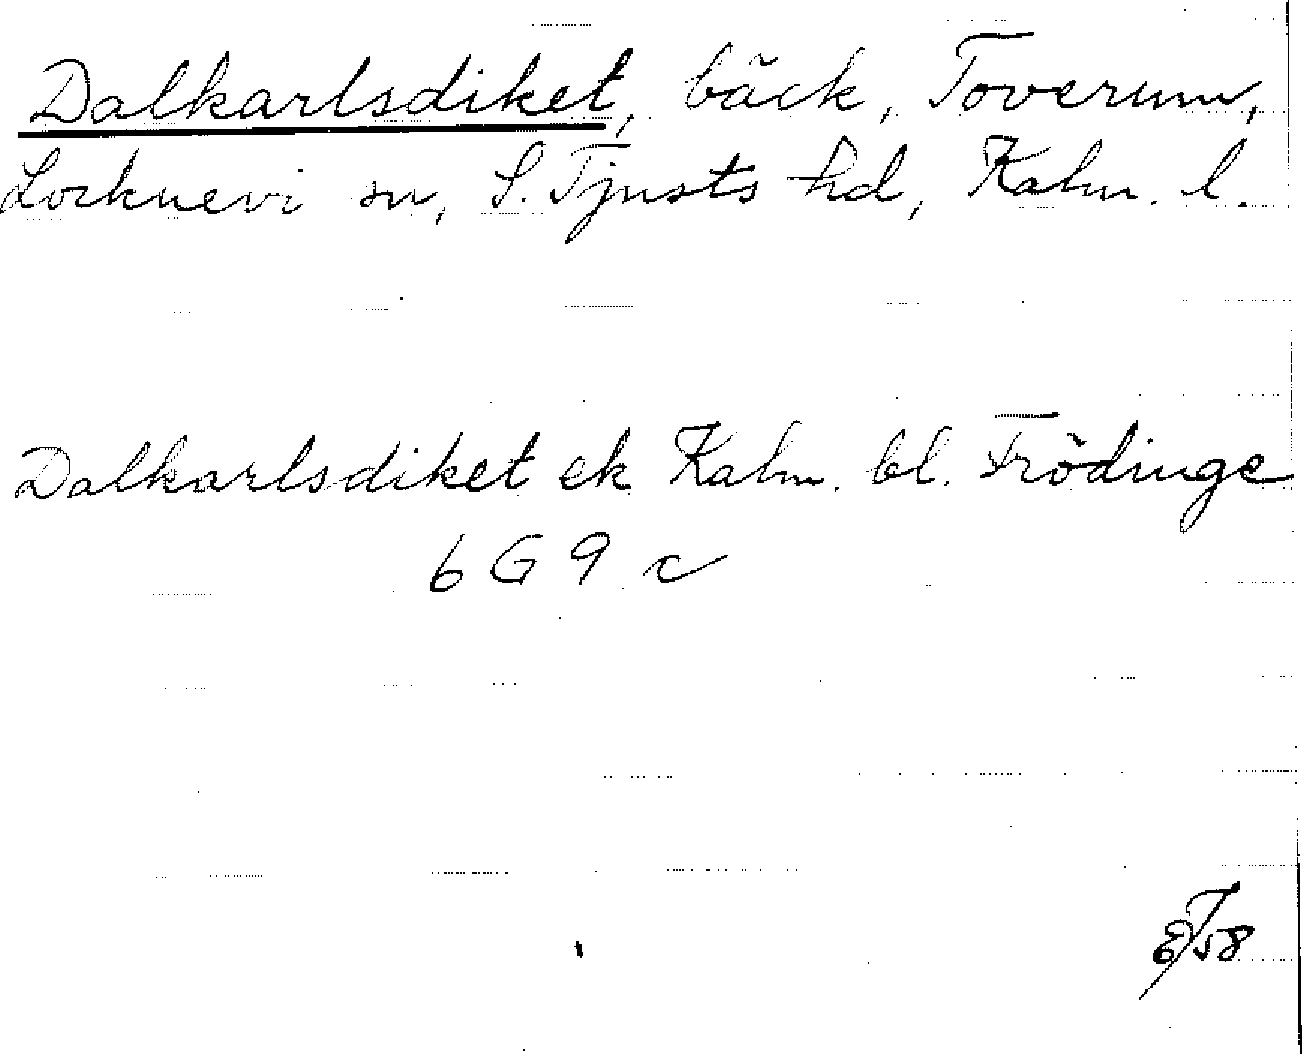 Dalkarlsdiket, bäck, Toverum,
Locknevi sn, S. Tjusts hd, Kalm. l.
Dalkarlsdiket ek Kalm. bl. Frödinge
6 G 9 c